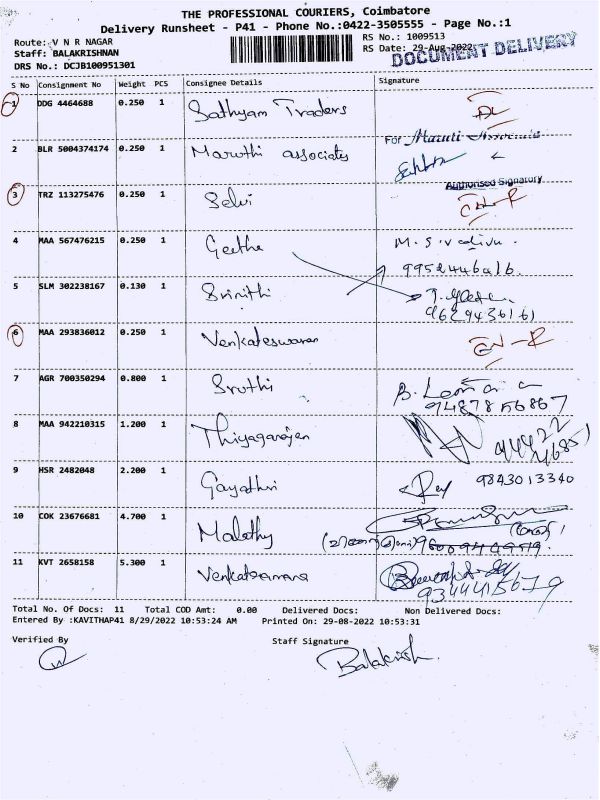 THE PROFESSIONAL COURIERS, Coimbatore
Delivery Runsheet - P41 - Phone No.:0422-3505555 - Page No.:1
Route: V N R NAGAR
RS No.: 1009513
Staff: BALAKRISHNAN
RS Date: 29-Aug-2022
DOCUMENT DELIVERY
DRS No.: DCJB100951301
S No Consignment No Weight PCS Consignee Details Signature
1 DDG 4464688 0.250 1 Sathyam Traders DL
2 BLR 5004374174 0.250 1 Maruthi associates For Maruti Associate
Authorised Signatory
3 TRZ 113275476 0.250 1 Selvi
4 MAA 567476215 0.250 1 Geetha M.S.vadivu.
9952446916.
5 SLM 302238167 0.130 1 Srinithi
9629436161
6 MAA 293836012 0.250 1 Venkateswaran
7 AGR 700350294 0.800 1 Sruthi
9487856867
8 MAA 942210315 1.200 1 Thiyagarajan
9 HSR 2482048 2.200 1 Gayathri 9843013340
10 COK 23676681 4.700 1 Malathy
11 KVT 2658158 5.300 1 Venkataramana
9344415679
Total No. Of Docs: 11 Total COD Amt: 0.00 Delivered Docs: Non Delivered Docs:
Entered By :KAVITHAP41 8/29/2022 10:53:24 AM Printed On: 29-08-2022 10:53:31
Verified By Staff Signature
Balakrish.